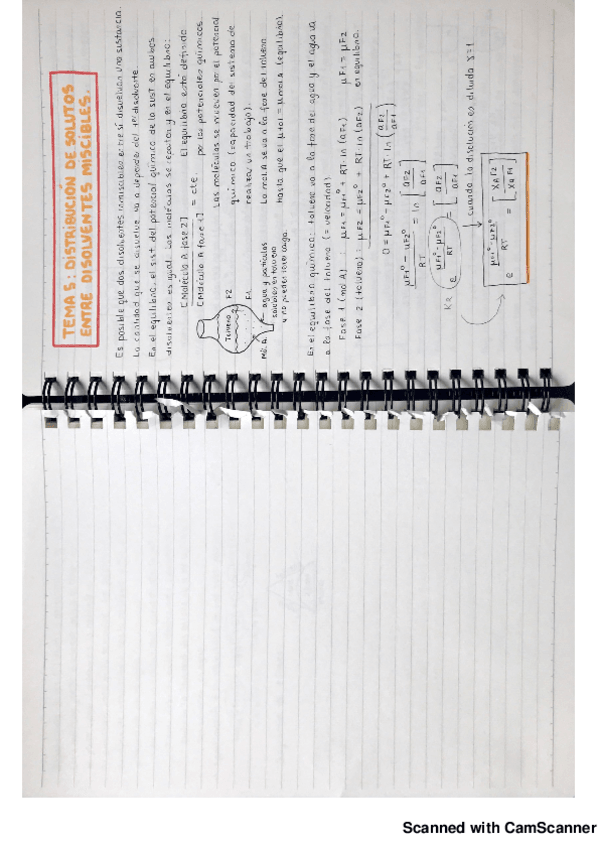 TEMA 5: DISTRIBUCIÓN DE SOLUTOS
ENTRE DISOLVENTES MISCIBLES.
Es posible que dos disolventes inmiscibles entre sí disuelvan una sustancia.
La cantidad que se disuelve va a depender del 1er disolvente.
En el equilibrio, el sist. del potencial químico de la sust en ambos
disolventes es igual. Las moléculas se repartan y en el equilibrio:
[Molécula A fase 2]
[Molécula A fase 1] = cte.
El equilibrio está definido
por los potenciales químicos.
Las moléculas se mueven por el potencial
químico (capacidad del sistema de
realizar un trabajo).
La molA se va a la fase del tolueno
hasta que el μtol = μmolA (equilibrio).
Tolueno
F2
F1
mol. A
agua y partículas
solubles en tolueno
y no pueden tener carga
En el equilibrio químico: tolueno va a la fase del agua y el agua va
a la fase del tolueno (= velocidad).
Fase 1 (mol A) : μF1 = μF1º + RT ln (aF1)
μF1 = μF2
Fase 2 (tolueno) : μF2 = μF2º + RT ln (aF2)
en equilibrio.
0 = μF1º - μF2º + RT · ln (aF2/aF1)
μF1º - μF2º / RT = ln [aF2/aF1]
e μF1º - μF2º / RT = [aF2/aF1]
cuando la disolución es diluida γ=1
e μF1º - μF2º / RT = [XAF2/XAF1]
Scanned with CamScanner